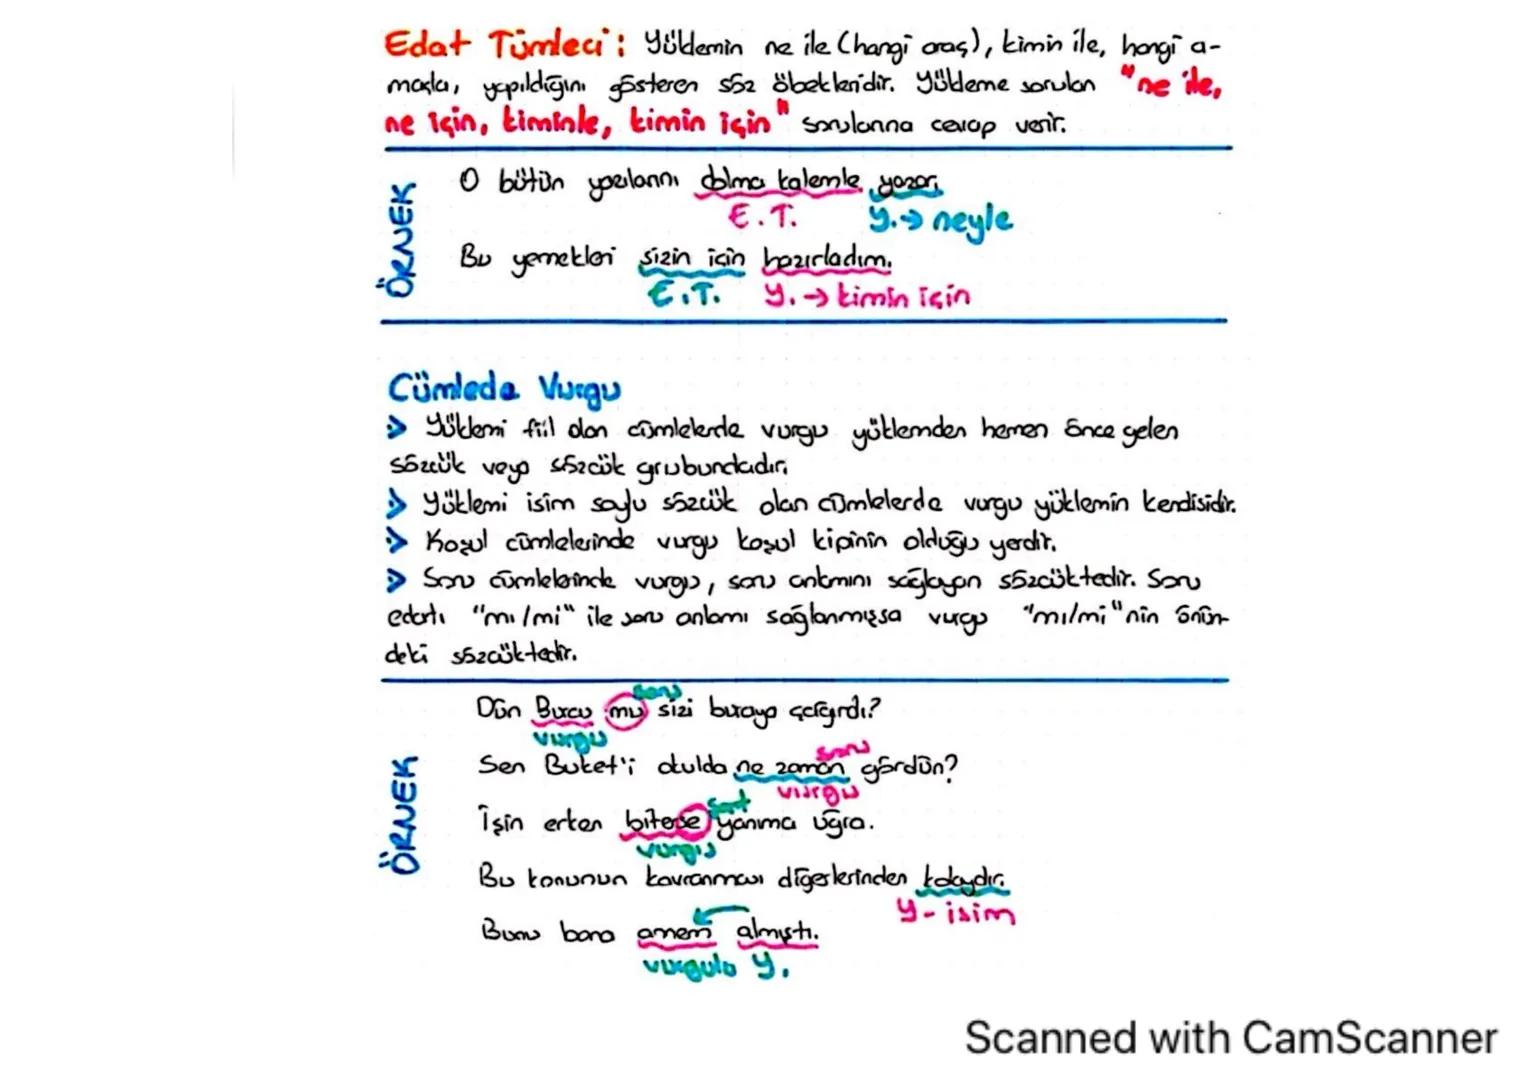 Edat Tümleci: Yüklemin ne ile (hangi araç), kimin ile, hangi a-
maçla, yapıldığını gösteren söz öbekleridir. Yükleme sorulan "ne ile,
ne için, kiminle, kimin için" sorularına cevap verir.
ÖRNEK
O bütün yazılarını dolma kalemle yazar.
E.T. Y.→ neyle
Bu yemekleri sizin için hazırladım.
E.T. Y.→ kimin için
Cümlede Vurgu
> Yüklemi fiil olan cümlelerde vurgu yüklemden hemen önce gelen
sözcük veya sözcük grubundadır.
> Yüklemi isim soylu sözcük olan cümlelerde vurgu yüklemin kendisidir.
> Koşul cümlelerinde vurgu koşul kipinin olduğu yerdir.
> Soru cümlelerinde vurgu, soru anlamını sağlayan sözcüktedir. Soru
edatı "mı/mi" ile soru anlamı sağlanmışsa vurgu "mı/mi"nin önün-
deki sözcüktedir.
soru
Dün Burcu mu sizi buraya çağırdı?
vurgu
soru
Sen Buket'i okulda ne zaman gördün?
vurgu
ÖRNEK
şart
İşin erken biterse yanıma uğra.
vurgu
Bu konunun kavranması diğerlerinden kolaydır.
Y- isim
Bunu bana annem almıştı.
vurgulu Y.
Scanned with CamScanner